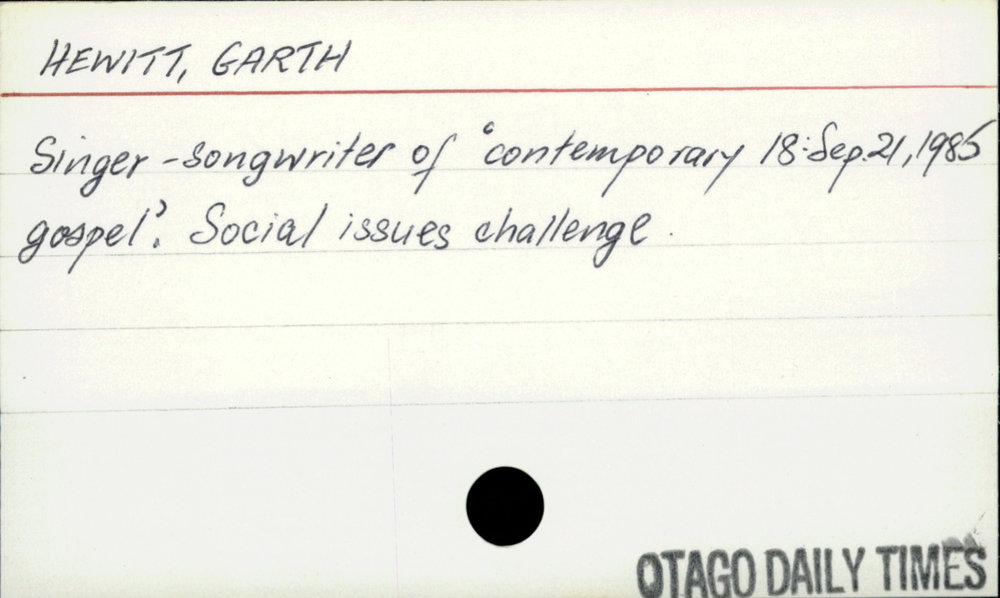 HEWITT, GARTH
Singer-songwriter of 'contemporary 18:Sep.21,1985
gospel'. Social issues challenge.
OTAGO DAILY TIMES